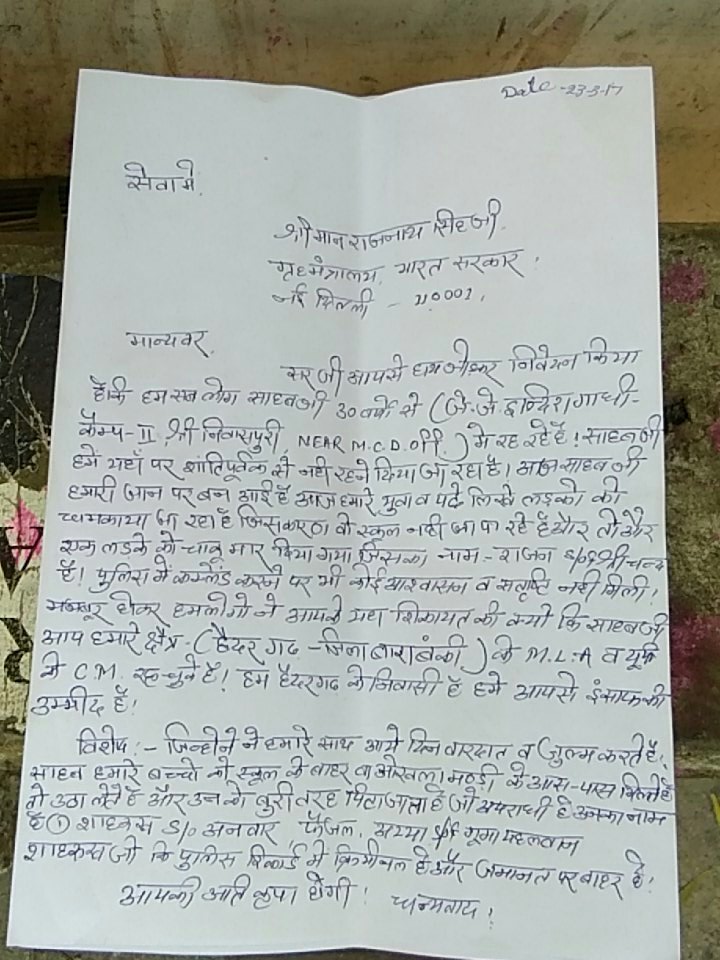 Date - 23-3-17
सेवा मे,
श्रीमान राजनाथ सिंह जी.
गृहमंत्रालय, भारत सरकार,
नई दिल्ली - 110001,
मान्यवर,
सर जी आपसे हाथ जोडकर निवेदन किया
है कि हम सब लोग साहब जी 30 वर्षो से (जे.जे. इन्दिरा गाधी-
कैम्प-II, श्री निवासपुरी, NEAR M.C.D. off.) मे रह रहे है! साहब जी
हमे यहाँ पर शांतिपूर्वक से नही रहने दिया जा रहा है! आज साहब जी
हमारी जान पर बन आई है आज हमारे युवा व पढे लिखे लडको को
धमकाया जा रहा है जिसकारण वो स्कूल नही जा पा रहे है और तो और
एक लडके को चाकू मार दिया गया जिसका नाम - राजन S/o श्री चन्द
है! पुलिस मे कम्प्लेंड करने पर भी कोई आश्वासन व संतुष्टि नही मिली!
मजबूर होकर हम लोगो ने आपके यहा शिकायत की क्यो कि साहब जी
आप हमारे क्षेत्र - (हैदर गढ - जिला बाराबंकी) के M.L.A व यूपी
के C.M. रह चुके है! हम हैदरगढ के निवासी है हमे आपसे इंसाफ की
उम्मीद है!
विशेष :- जिन्होने ने हमारे साथ आये दिन वारदात व जुल्म करते है!
साहब हमारे बच्चो को स्कूल के बाहर वा ओखला मण्डी के आस-पास मिलते है
तो उठा लेते है और उनको बुरी तरह पिटा जाता है जो अपराधी है उनका नाम
है ① शाहरुख S/o अनवार, फैजल, अय्या S/o गूगा पहलवान
शाहरुख जो कि पुलिस रिकार्ड मे क्रिमीनल है और जमानत पर बाहर है!
आपकी अति कृपा होगी! धन्यवाद!